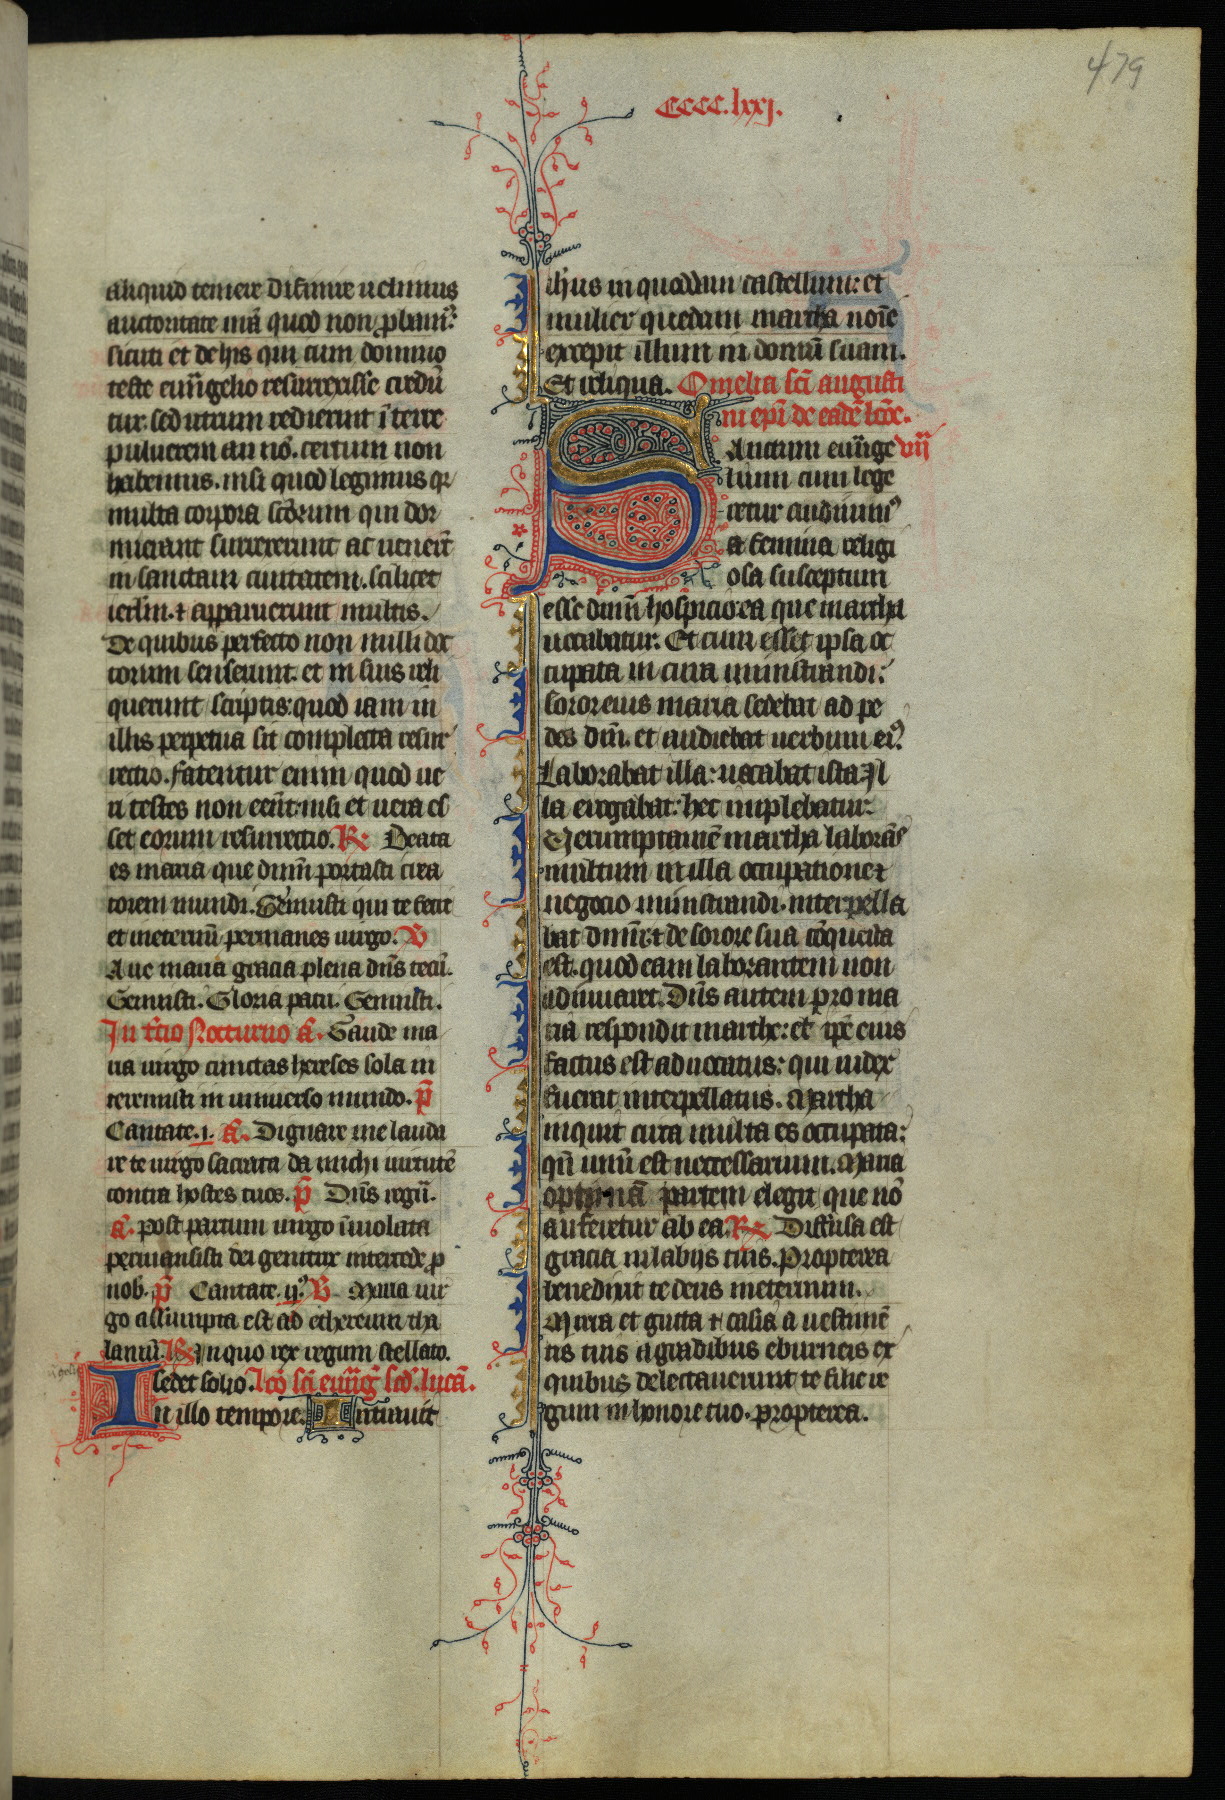 479
cccc.lxxj.
aliquid temere diffinire uelimus
auctoritate mã quod non ꝓbam⁹:
sicuti et de hijs qui cum domino
teste euñgelio resurrexisse credũ
tur. sed utrum redierint ĩ terre
puluerem an nõ. certum non
habemus. nisi quod legimus qꝛ
multa corpora sc̃orum qui dor
mierant surrexerunt ac uener̃t
in sanctam ciuitatem. scilicet
ierlm̃. ⁊ apparuerunt multis.
De quibus perfecto non nulli doc
torum senserunt: et in suis reli
querunt scriptis: quod iam in
illis perpetua sit completa resur
rectio. fatentur enim quod ue
ri testes non eẽnt: nisi et uera es
set eorum resurrectio. R̃. Beata
es maria que dnm̃ portasti crea
torem mundi. Genuisti qui te fecit
et ineternũ permanes uirgo. V
Aue maria gracia plena dñs tecũ.
Genuisti. Gloria patri. Genuisti.
In tc̃io Nocturno ã. Gaude ma
ria uirgo cunctas hereses sola in
teremisti in uniuerso mundo. p̃
Cantate. i. ã. Dignare me lauda
re te uirgo sacrata da michi uirtutẽ
contra hostes tuos. p̃ Dñs regñ.
ã. post partum uirgo ĩuiolata
permansisti dei genitrix intercede ꝓ
nob. p̃ Cantate. ij⁹ V Maria uir
go assumpta est ad ethereum tha
lamũ. R̃ In quo rex regum stellato.
sedet solio. lc̃o sc̃i euñg̃ sc̃d̃ lucã.
In illo tempore. Intrauit
ihus in quoddam castellum: et
mulier quedam martha noĩe
excepit illum in domũ suam.
Et reliqua. Omelia sc̃i augusti
ni ep̃i de eadẽ lc̃õe.
Sanctum euñge vij
lium cum lege
retur audiuim⁹
a femina religi
osa susceptum
esse dnm̃ hospicio: ea que martha
uocabatur. Et cum esset ipsa oc
cupata in cura ministrandi:
soror eius maria sedebat ad pe
des dñi. et audiebat uerbum ei⁹.
Laborabat illa: uacabat ista. Il
la erogabat: hec implebatur.
Verumptamẽ martha laborãs
multum in illa occupatione ⁊
negocio ministrandi. interpella
bat dnm̃: ⁊ de sorore sua cõquesta
est. quod eam laborantem non
adiuuaret. Dñs autem pro ma
ria respondit marthe: et ip̃e eius
factus est aduocatus: qui iudex
fuerat interpellatus. Martha
inquit circa multa es occupata:
qñ unũ est neccessarium. Maria
optimã partem elegit que nõ
auferetur ab ea. R̃ Diffusa est
gracia in labijs tuis. Propterea
benedixit te deus ineternum.
Mirra et gutta ⁊ casia a uestimẽ
tis tuis a gradibus eburneis ex
quibus delectauerunt te filie re
gum in honore tuo. propterea.